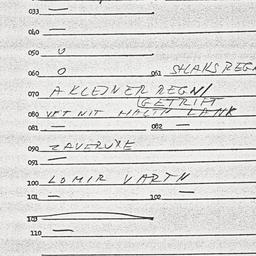 033 —
040 —
050 0
060 0 061 SHAKS REGN
070 A KLEINER REGN/
GETRIFT
080 VET NIT HALTN LANK
081 — 082 —
090 ZAVERUXE
091 —
100 LOMIR VARTN
101 — 102 —
103
110 —